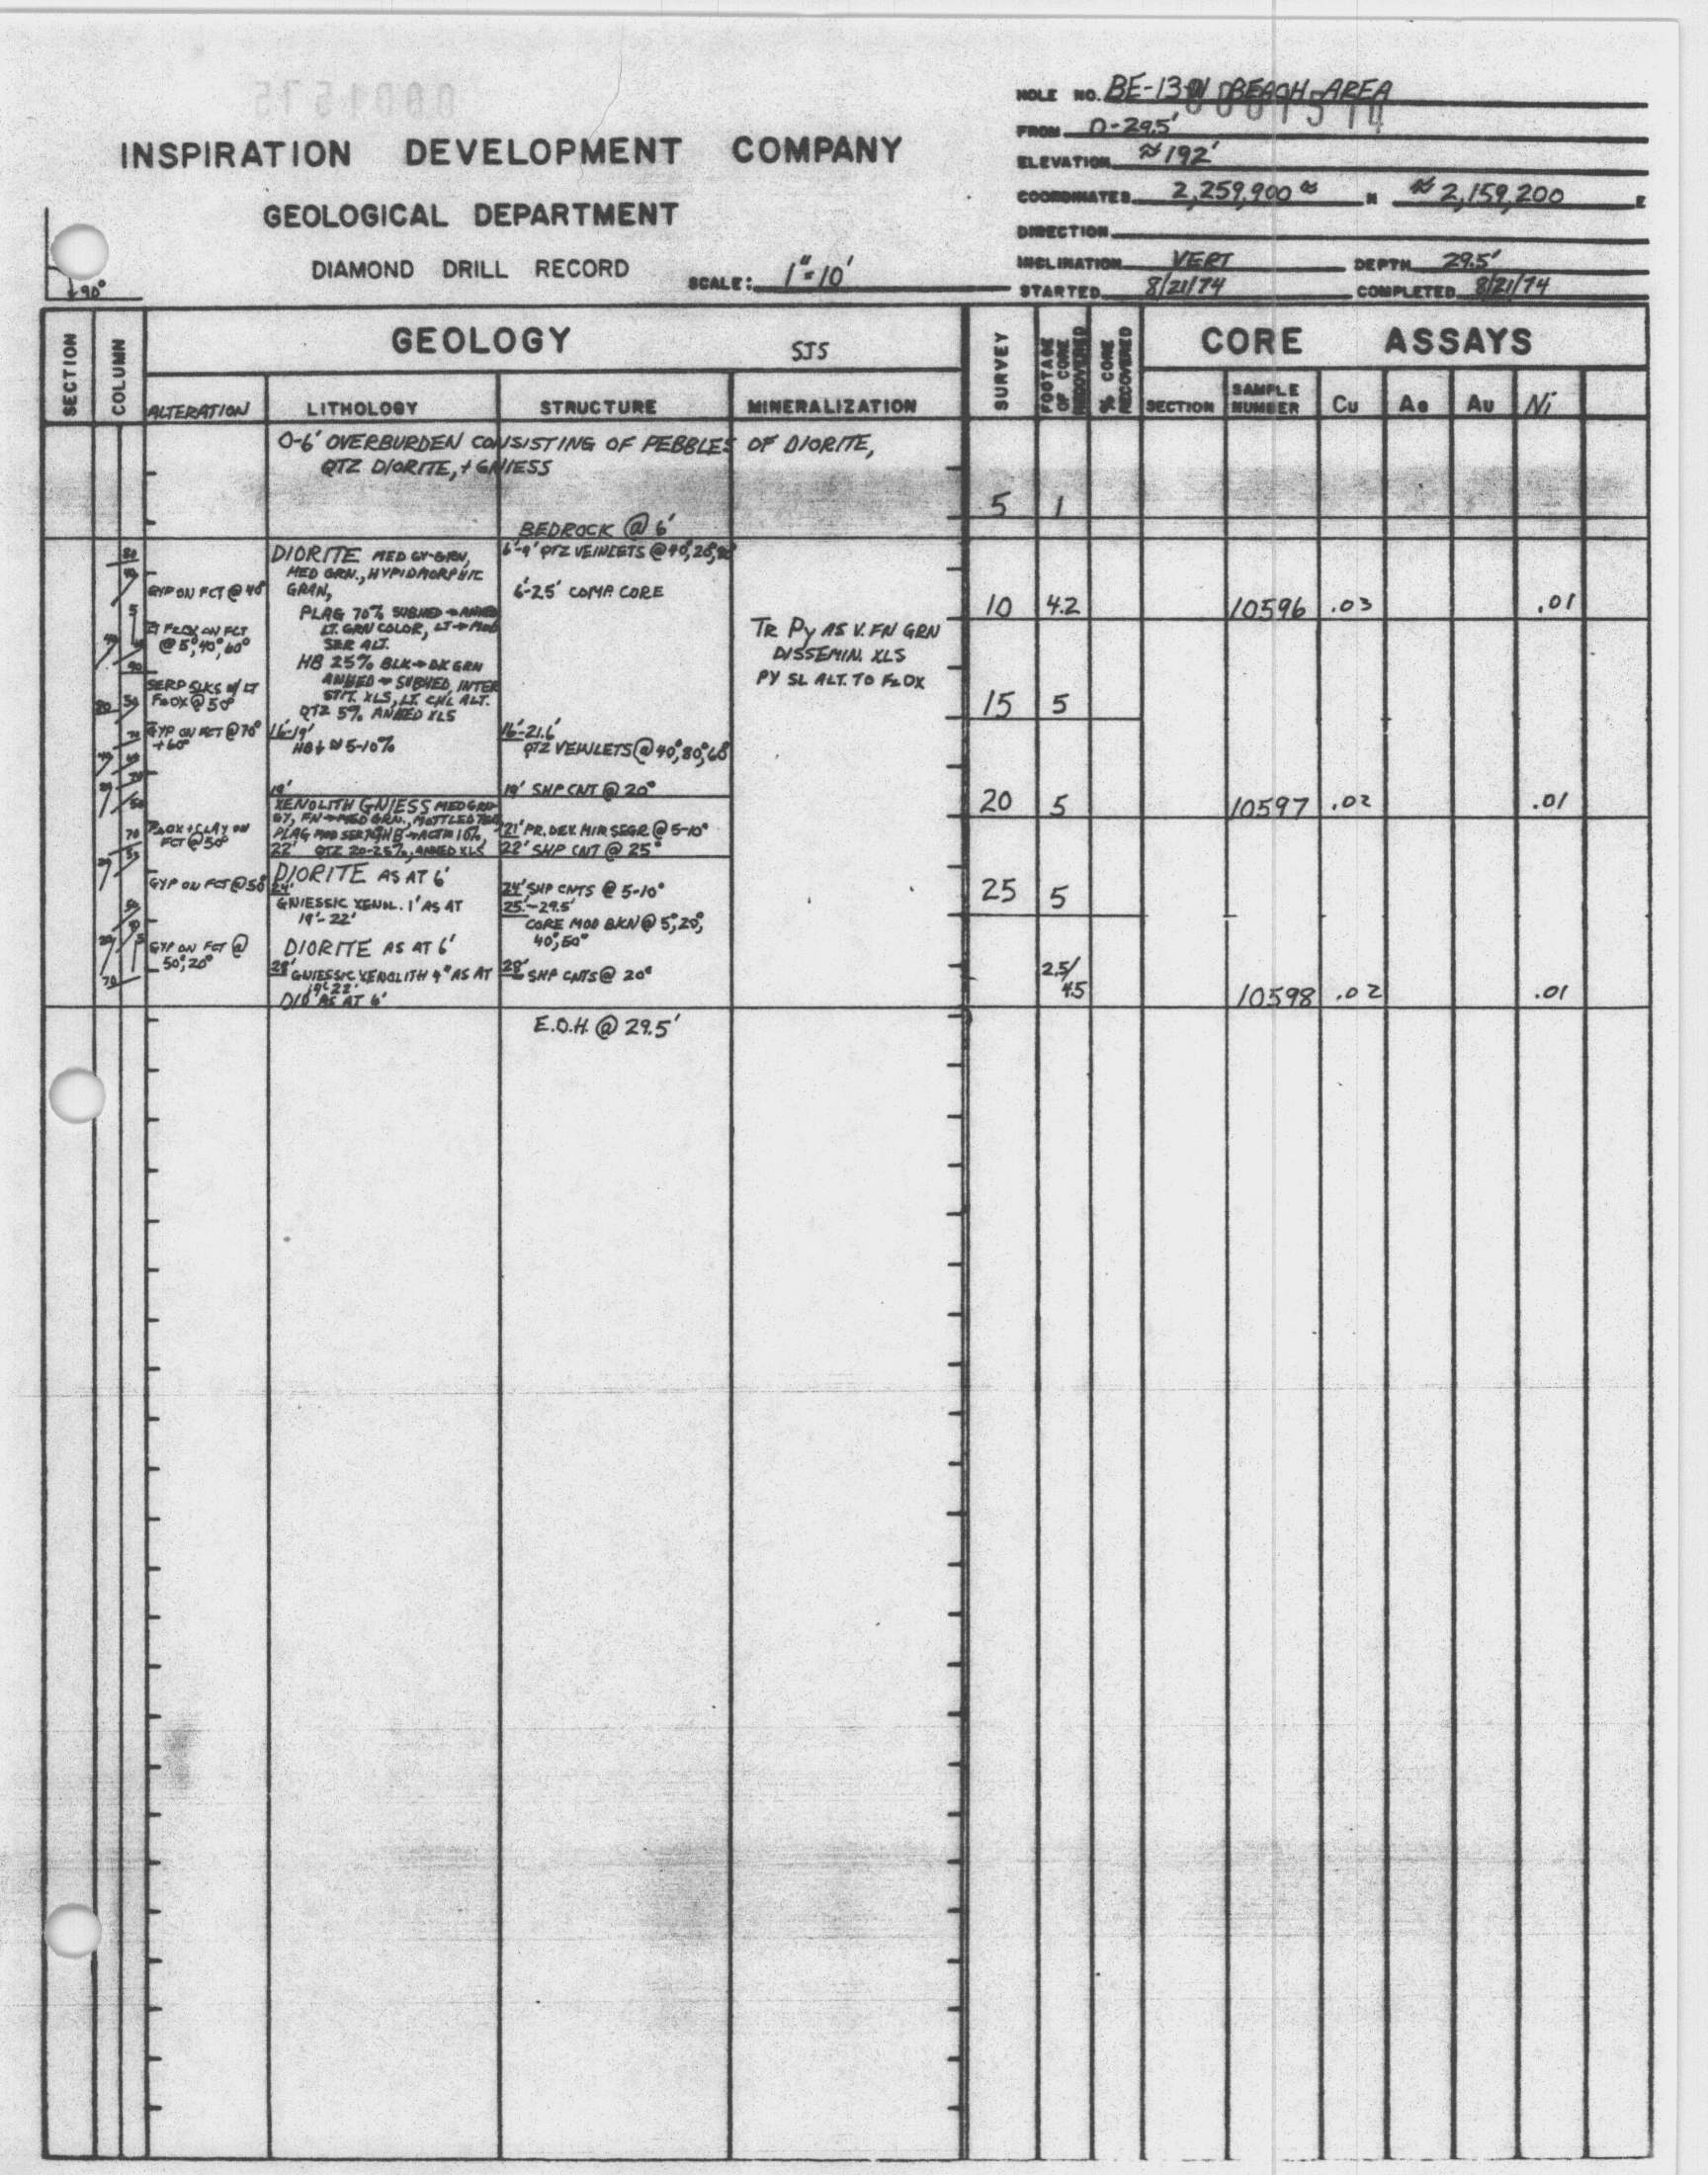 0001575
HOLE NO. BE-13 W BEACH AREA
0001574
FROM 0-29.5'
INSPIRATION DEVELOPMENT COMPANY
ELEVATION ≈192'
COORDINATES 2,259,900 ≈ N ≈ 2,159,200 E
GEOLOGICAL DEPARTMENT
DIRECTION
DIAMOND DRILL RECORD
SCALE: 1"=10'
INCLINATION VERT DEPTH 29.5'
STARTED 8/21/74 COMPLETED 8/21/74
90°
SECTION
COLUMN
GEOLOGY SJS
SURVEY
FOOTAGE OF CORE RECOVERED
% CORE RECOVERED
CORE ASSAYS
ALTERATION LITHOLOGY STRUCTURE MINERALIZATION
SECTION SAMPLE NUMBER Cu Ag Au Ni
0-6' OVERBURDEN CONSISTING OF PEBBLES OF DIORITE,
QTZ DIORITE, + GNIESS
5 1
BEDROCK @ 6'
GYP ON FCT @ 40°
LT FEOX ON FCT
@ 5°, 40°, 60°
SERP SLKS W/ LT
FEOX @ 50°
GYP ON FCT @ 70°
+60°
FEOX + CLAY ON
FCT @ 50°
GYP ON FCT @ 50°
GYP ON FCT @
50°, 20°
DIORITE MED GY-GRN,
MED GRN., HYPIDMORPHIC
GRAN,
PLAG 70% SUBHED → ANHED
LT. GRN COLOR, LT → MOD
SER ALT.
HB 25% BLK → DK GRN
ANHED → SUBHED, INTER
STIT. XLS, LT. CHL ALT.
QTZ 5% ANHED XLS
16'-19'
HB ↓ ≈ 5-10%
19'
XENOLITH GNIESS MED GRN-
GY, FN → MED GRN., MOTTLED TEX
PLAG MOD SER 70% HB → ACTIN 10%,
22' QTZ 20-25%, ANHED XLS
DIORITE AS AT 6'
24'
GNIESSIC XENOL. 1' AS AT
19'-22'
DIORITE AS AT 6'
28' GNIESSIC XENOLITH 4" AS AT
19'-22'
DIO AS AT 6'
6'-9' QTZ VEINLETS @ 40°, 20°,
6'-25' COMP CORE
16'-21.6'
QTZ VEINLETS @ 40°, 80°, 60°
19' SHP CNT @ 20°
21' PR. DEV. MIN SEGR @ 5-10°
22' SHP CNT @ 25°
24' SHP CNTS @ 5-10°
25'-29.5'
CORE MOD BKN @ 5°, 20°,
40°, 50°
28' SHP CNTS @ 20°
E.O.H. @ 29.5'
TR PY AS V. FN GRN
DISSEMIN. XLS
PY SL ALT. TO FEOX
10 4.2 10596 .03 .01
15 5
20 5 10597 .02 .01
25 5
2.5/
4.5 10598 .02 .01